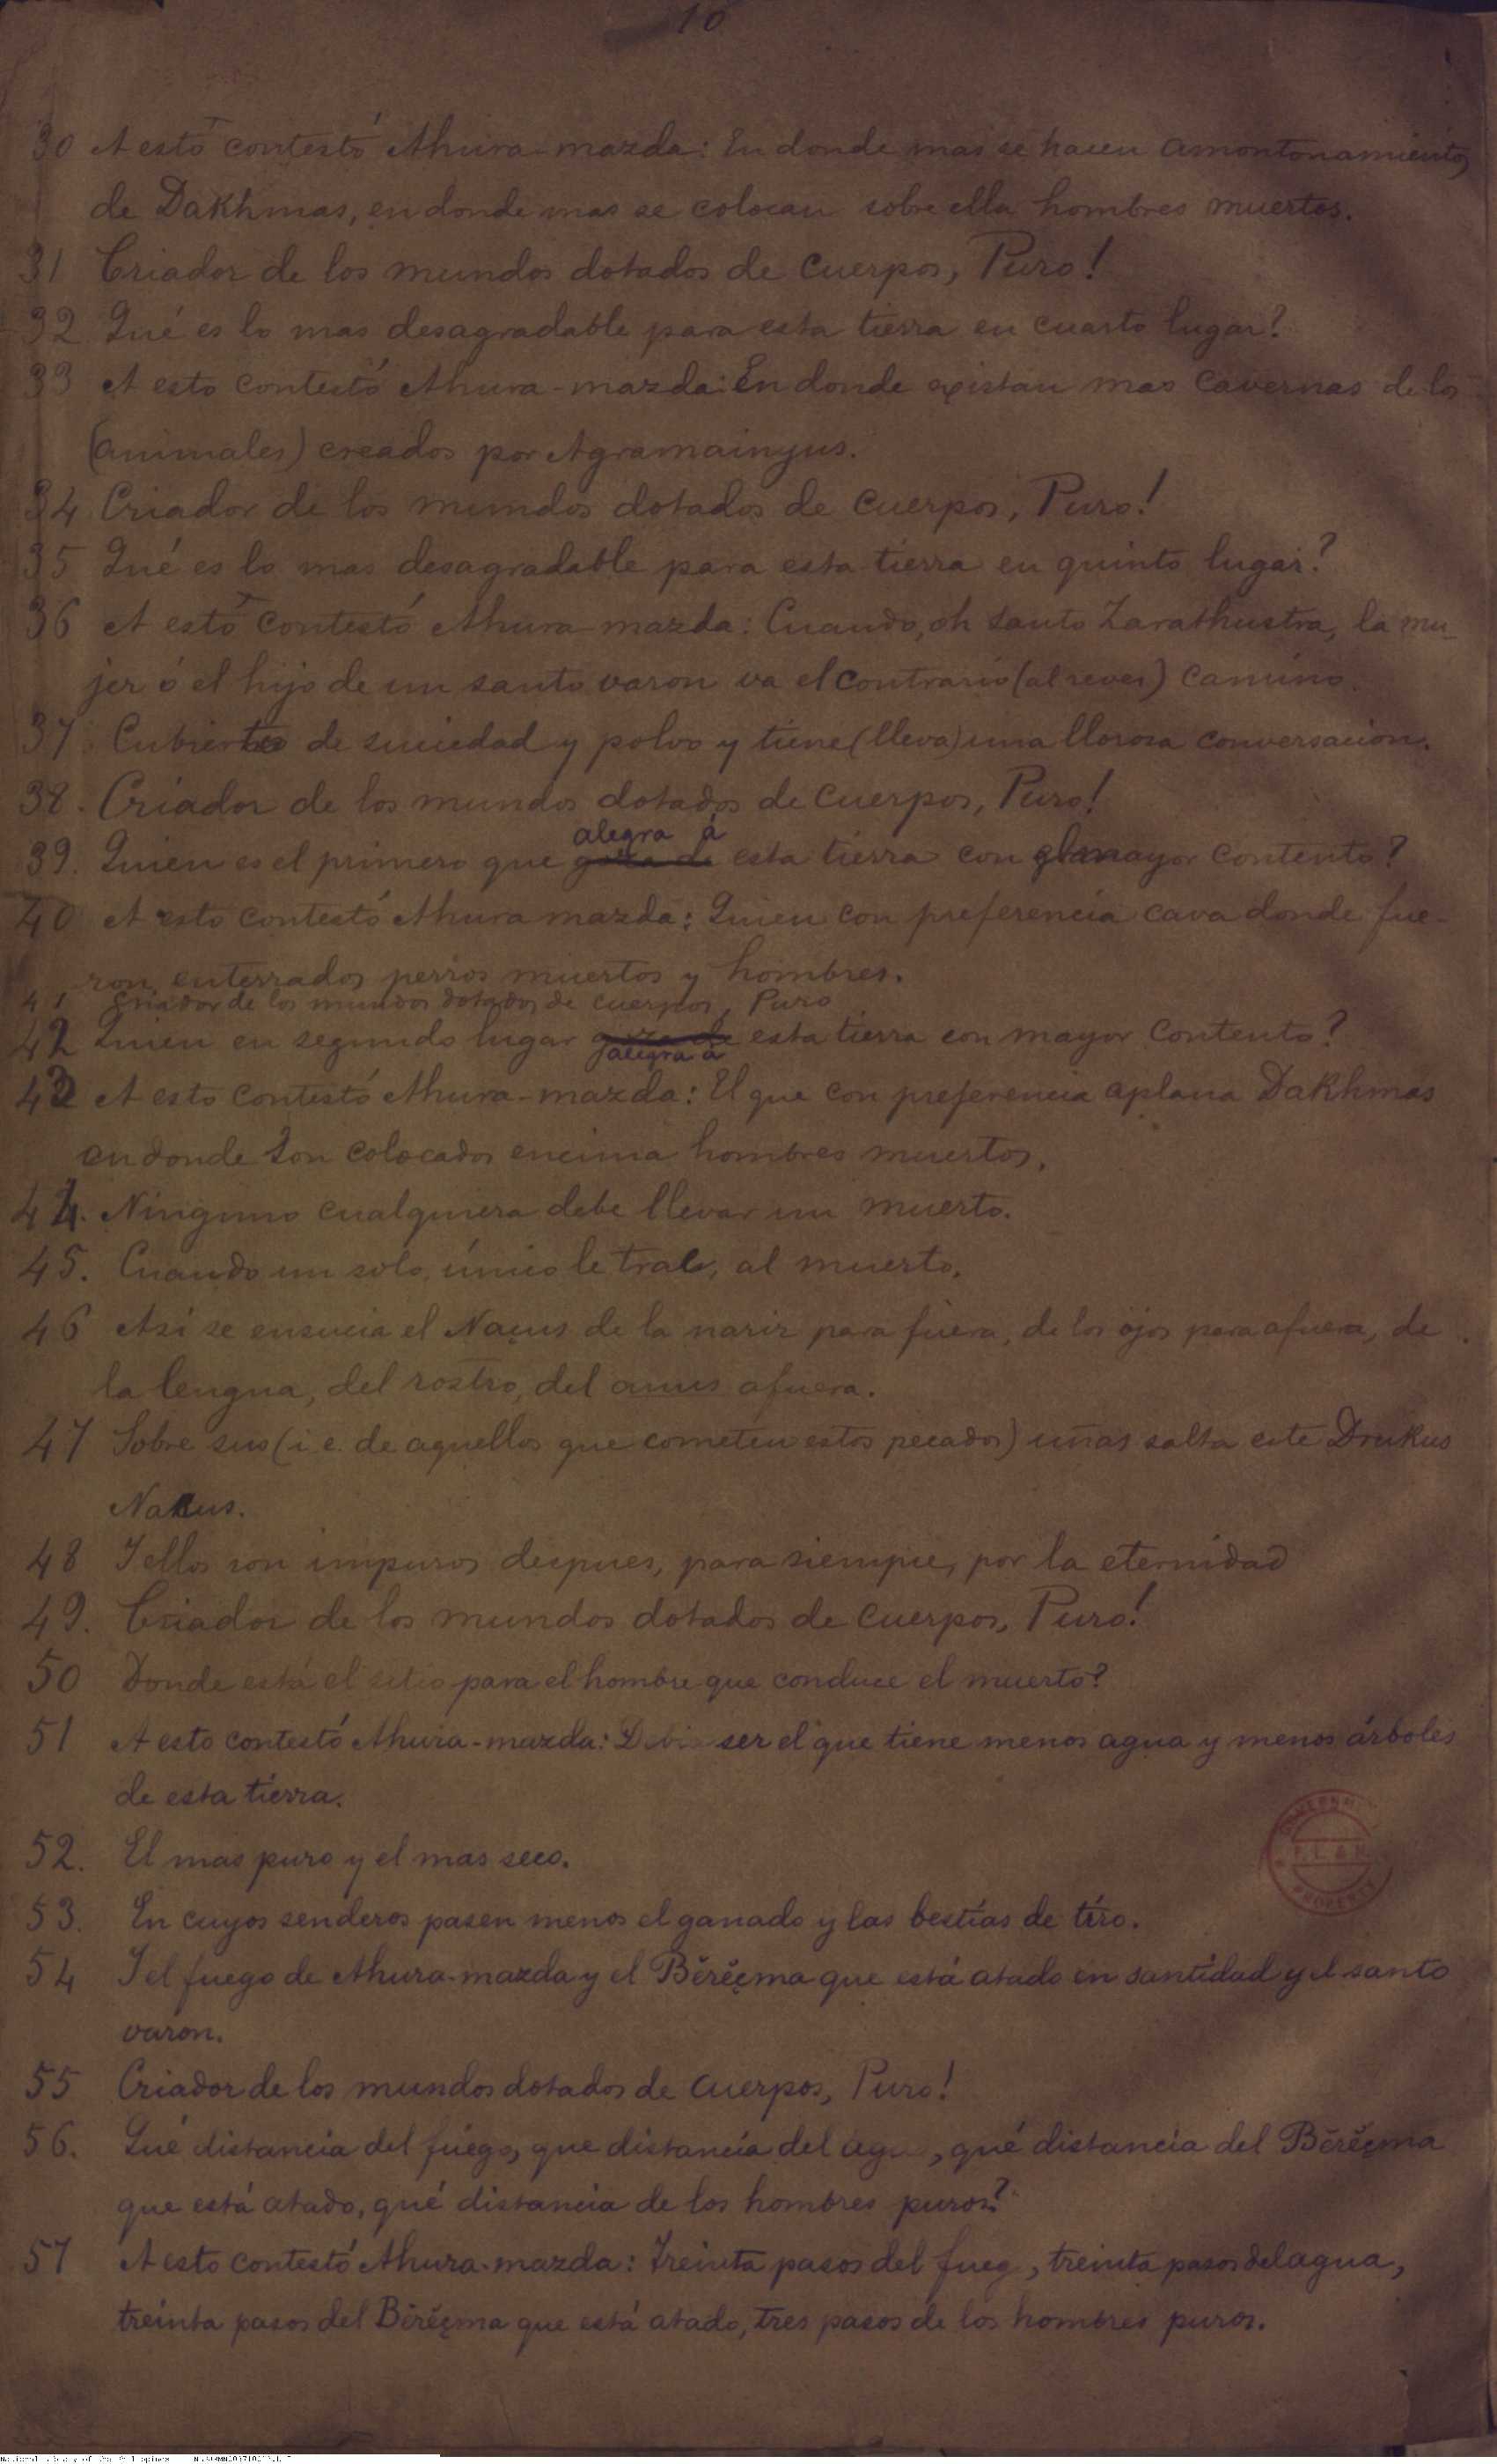 10
30 A esto contestó Ahura-mazda: En donde mas se hacen amontonamientos
de Dakhmas, en donde mas se colocan sobre ella hombres muertos.
31 Criador de los mundos dotados de cuerpos, Puro!
32 Qué es lo mas desagradable para esta tierra en cuarto lugar?
33 A esto contestó Ahura-mazda: En donde existan mas cavernas de los
(animales) creados por Agramainyus.
34 Criador de los mundos dotados de cuerpos, Puro!
35 Qué es lo mas desagradable para esta tierra en quinto lugar?
36 A esto contestó Ahura-mazda: Cuando, oh santo Zarathustra, la mu-
jer ó el hijo de un santo varon va el contrario (al reves) camino.
37 Cubiertos de suciedad y polvo y tiene (lleva) una llorosa conversacion.
38. Criador de los mundos dotados de cuerpos, Puro!
alegra á
39. Quien es el primero que goza de esta tierra con el mayor contento?
40 A esto contestó Ahura mazda: Quien con preferencia cava donde fue-
ron enterrados perros muertos y hombres.
41 Criador de los mundos dotados de cuerpos, Puro
42 Quien en segundo lugar goza de esta tierra con mayor contento?
alegra á
43 A esto contestó Ahura-mazda: El que con preferencia aplana Dakhmas
en donde son colocados encima hombres muertos.
44. Ninguno cualquiera debe llevar un muerto.
45. Cuando un solo, único le trae, al muerto.
46 Asi se ensucia el Naçus de la nariz para fuera, de los ojos para afuera, de
la lengua, del rostro, del anus afuera.
47 Sobre sus (i.e. de aquellos que cometen estos pecados) uñas salta este Drukus
Nakus.
48 Y ellos son impuros despues, para siempre, por la eternidad
49. Criador de los mundos dotados de cuerpos, Puro!
50 Donde está el sitio para el hombre que conduce el muerto?
51 A esto contestó Ahura-mazda: Debia ser el que tiene menos agua y menos árboles
de esta tierra.
52. El mas puro y el mas seco.
53. En cuyos senderos pasen menos el ganado y las bestias de tiro.
54 Y el fuego de Ahura-mazda y el Bĕrĕçma que está atado en santidad y el santo
varon.
55 Criador de los mundos dotados de cuerpos, Puro!
56. Qué distancia del fuego, que distancia del ag , qué distancia del Bĕrĕçma
que está atado, qué distancia de los hombres puros?
57 A esto contestó Ahura-mazda: Treinta pasos del fueg , treinta pasos del agua,
treinta pasos del Bĕrĕçma que está atado, tres pasos de los hombres puros.
PROPERTY